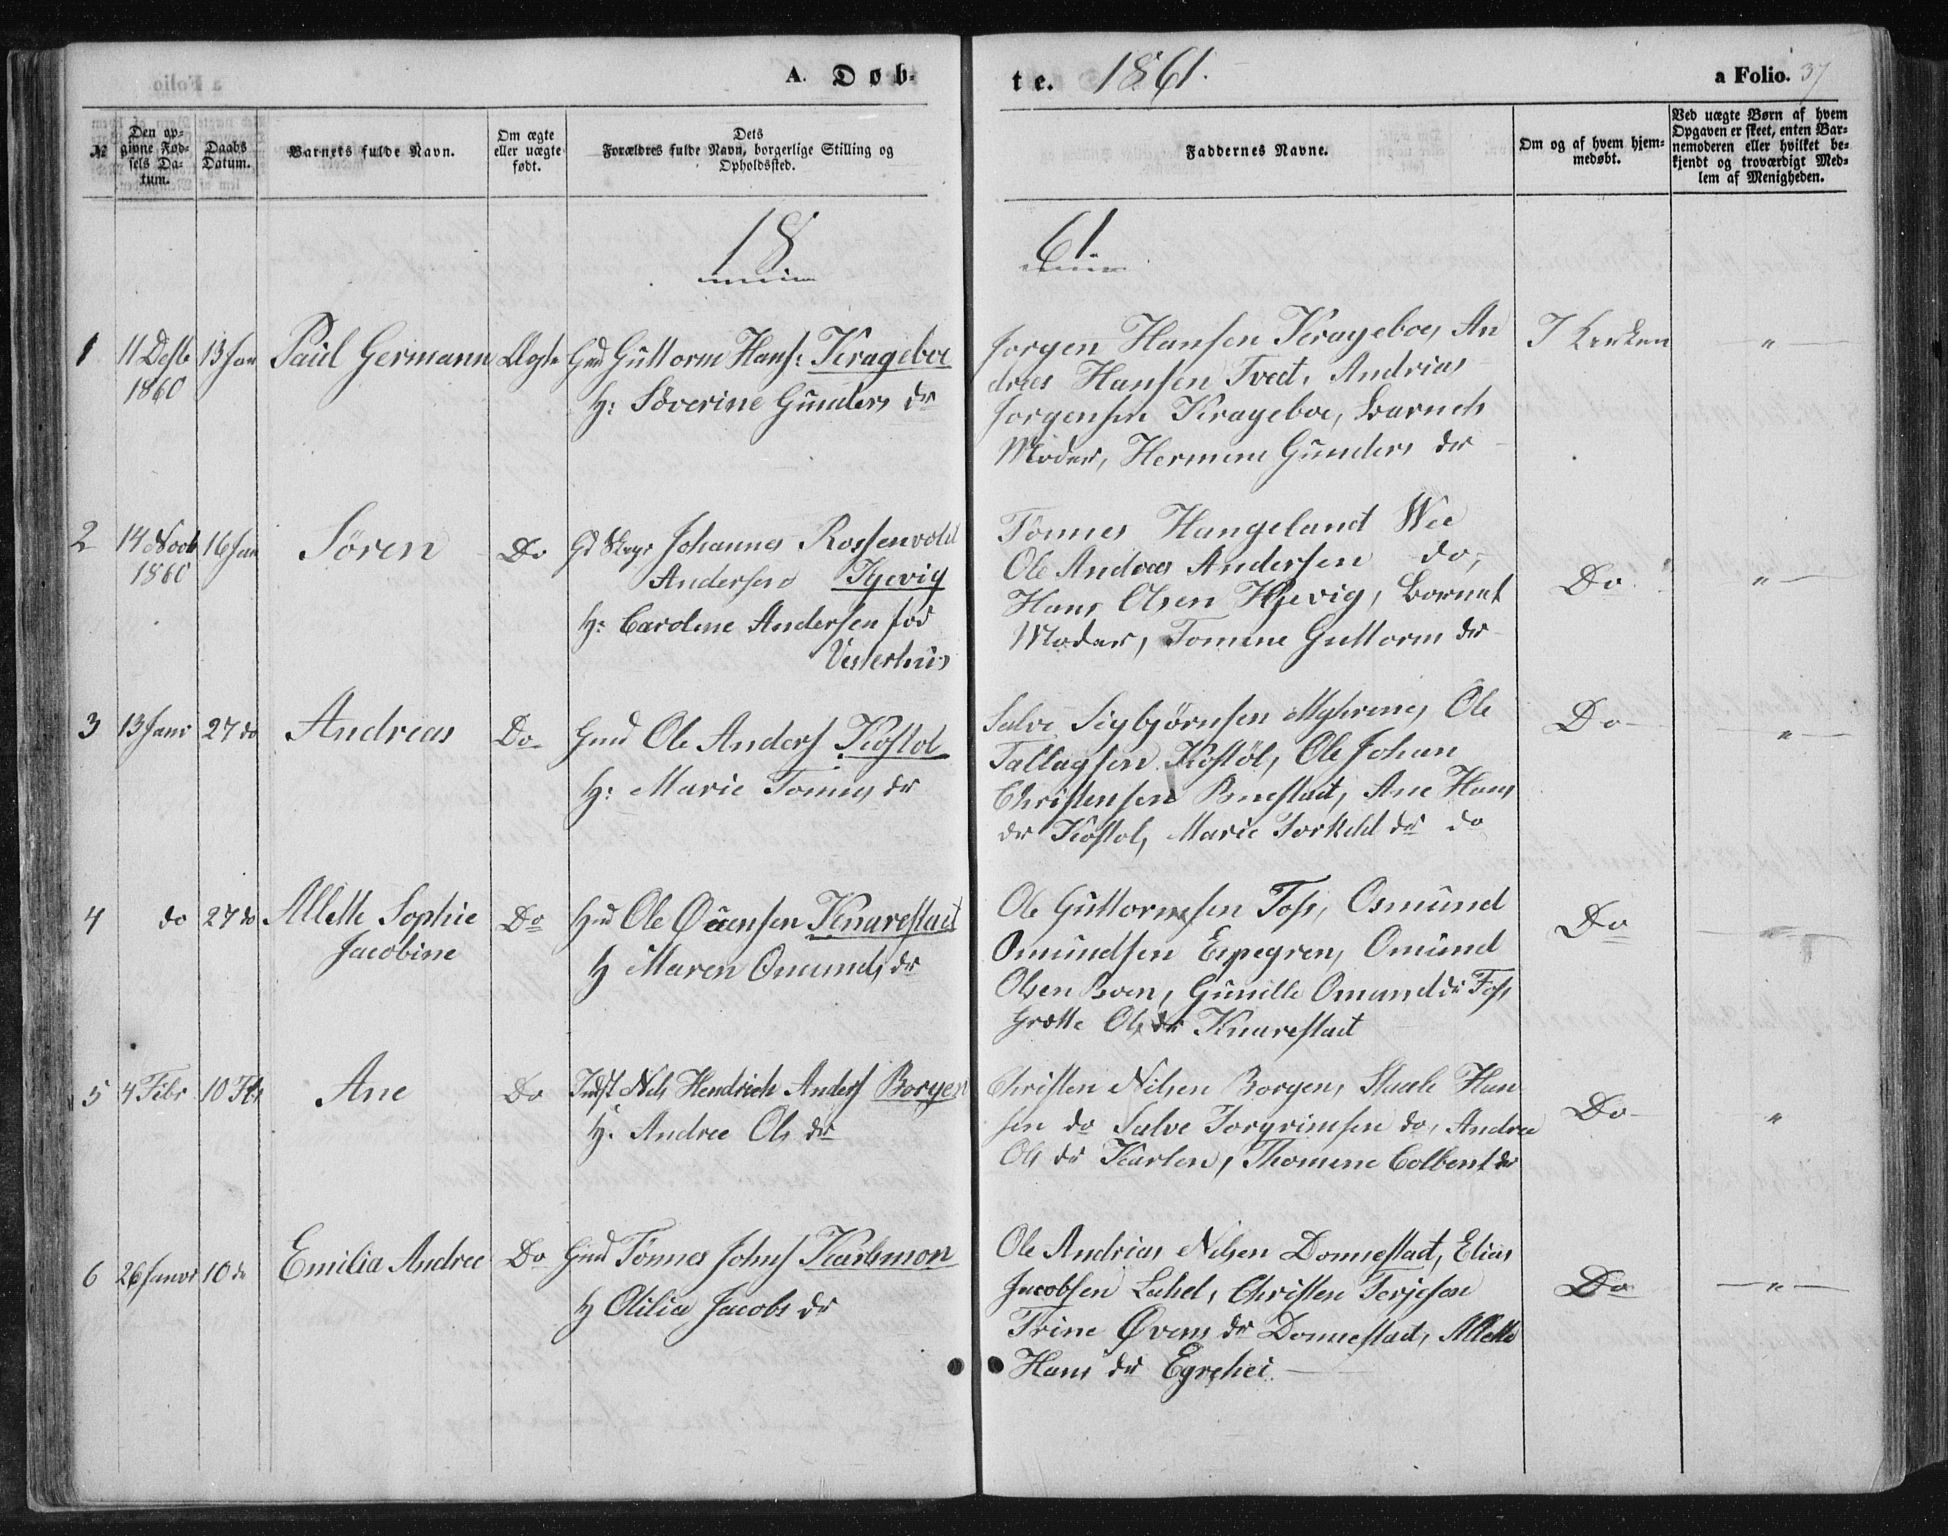 A. Døb-
te. 1861.
a Folio. 37
№
Den opgivne Fødsels Datum.
Daabs Datum.
Barnets fulde Navn.
Om ægte eller uægte født.
Dets
Forældres fulde Navn, borgerlige Stilling og
Opholdssted.
Faddernes Navne.
Om og af hvem hjemmedøbt.
Ved uægte Børn af hvem
Opgaven er skeet, enten Bar-
nemoderen eller hvilket be-
kjendt og troværdigt Med-
lem af Menigheden.
18
61
1 11 Desb 1860 13 Jan Paul Germann Ægte
Gmd Guttorm Hans: Krageboe
H: Severine Gunders dr
Jorgen Hansen Krageboe, An
dreas Hansen Tved, Andrias
Jorgensen Krageboe, Barnets
Moder, Hermine Gunders dr
I Kirken "
2 14 Novb 1860 16 Jan Søren Do
Johannes Rossenvold
Andersen Kjevig
H: Caroline Andersen fød
Vesterhus
Tönnes Hangeland Wee
Ole Andreas Andersen do,
Hans Olsen Kjevig, Barnet
Moder, Tomine Guttorm dr
Do "
3 13 Janr 27 do Andreas Do
Gmd Ole Anders Kostol
H: Marie Tonnes dr
Salve Sigbjørnsen Myhrene, Ole
Tallagsen Kostöl, Ole Johan
Christensen Benestad, Ane Hans
dr Kostol, Marie Torkild dr do
Do "
4 do 27 do Allette Sophie
Jacobine Do
Ole Ouensen Knarestad
H Maren Omunds dr
Ole Guttormsen Foss, Osmund
Omundsen Espegren, Omund
Olsen Boen, Gunille Omund dr Foss
Grette Ols dr Knarestad
Do "
5 4 Febr 10 Fbr Ane Do
Indst Nels Hendrich Anders Borgen
H. Andree Ols dr
Christen Nilsen Borgen, Staale Han
sen do Salve Torgrimsen do, Andrea
Ols dr Karlen, Thomine Colbent dr
Do "
6 26 Janvr 10 do Emilia Andree Do
Gmd Tönnes Johns Karlsmon
H Otilia Jacobs dr
Ole Andrias Nilsen Donnestad, Elias
Jacobsen Lahel, Christen Terjesen
Trine Øvens dr Donnestad, Allette
Hans dr Egrehei
Do "